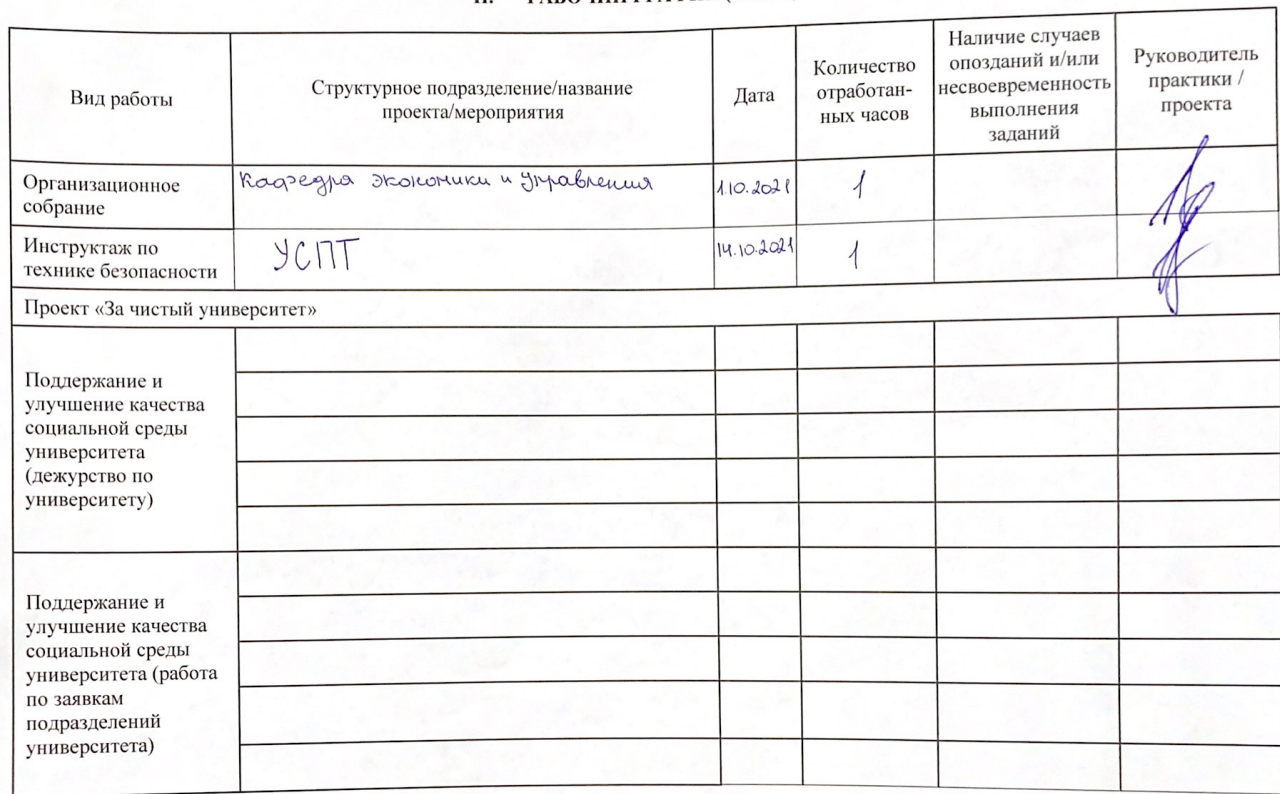 Вид работы
Структурное подразделение/название
проекта/мероприятия
Дата
Количество
отработан-
ных часов
Наличие случаев
опозданий и/или
несвоевременность
выполнения
заданий
Руководитель
практики /
проекта
Организационное
собрание
Кафедра экономики и управления
1.10.2021
1
Инструктаж по
технике безопасности
УСПТ
14.10.2021
1
Проект «За чистый университет»
Поддержание и
улучшение качества
социальной среды
университета
(дежурство по
университету)
Поддержание и
улучшение качества
социальной среды
университета (работа
по заявкам
подразделений
университета)